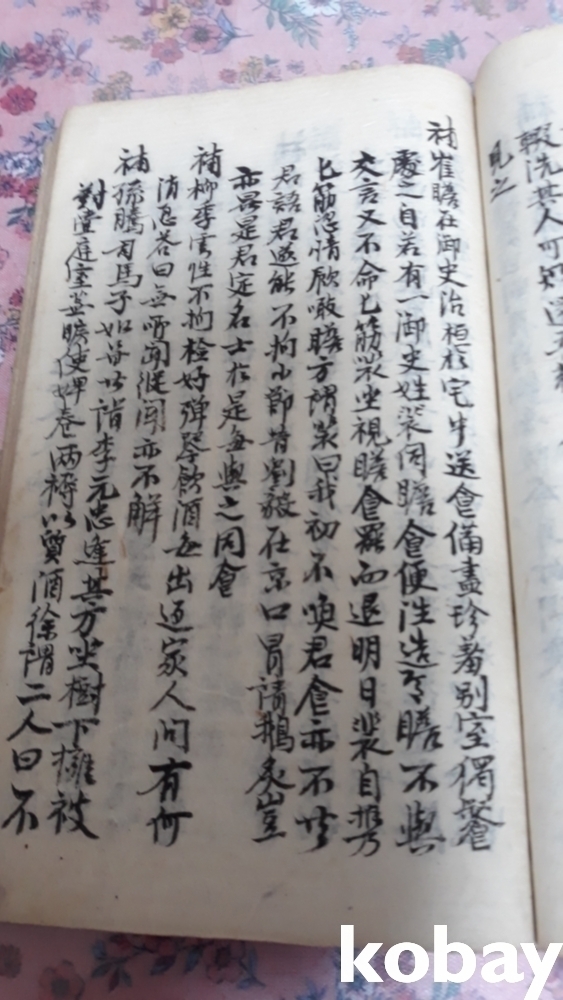 輟洗其人可知
見之
補崔瞻在御史治桓於宅中送食備盡珍羞別室獨飡
處之自若有一御史姓裴伺瞻食便往造焉瞻不與
交言又不命匕筯裴坐視瞻食罷而退明日裴自携
匕筯恣情飲噉瞻方謂裴曰我初不喚君食亦不共
君語君遂能不拘小節昔劉毅在京口冒請鵝炙豈
亦異是君定名士於是每與之同食
補柳季雲性不拘檢好彈琴飲酒每出返家人問有何
消息答曰無所聞縱聞亦不解
補孫騰司馬子如嘗共詣李元忠逢其方坐樹下擁被
對壺庭室蕪曠使婢卷兩褥以質酒徐謂二人曰不
kobay